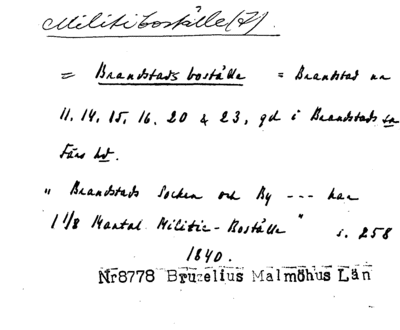 Militiboställe(7).
= Brandstads boställe = Brandstad nr
11, 14, 15, 16, 20 & 23, gd i Brandstads sn
Färs hd.
" Brandstads Socken och By --- har
1 1/8 Mantal Militie-Boställe " s. 258
1840.
Nr8778 Bruzelius Malmöhus Län